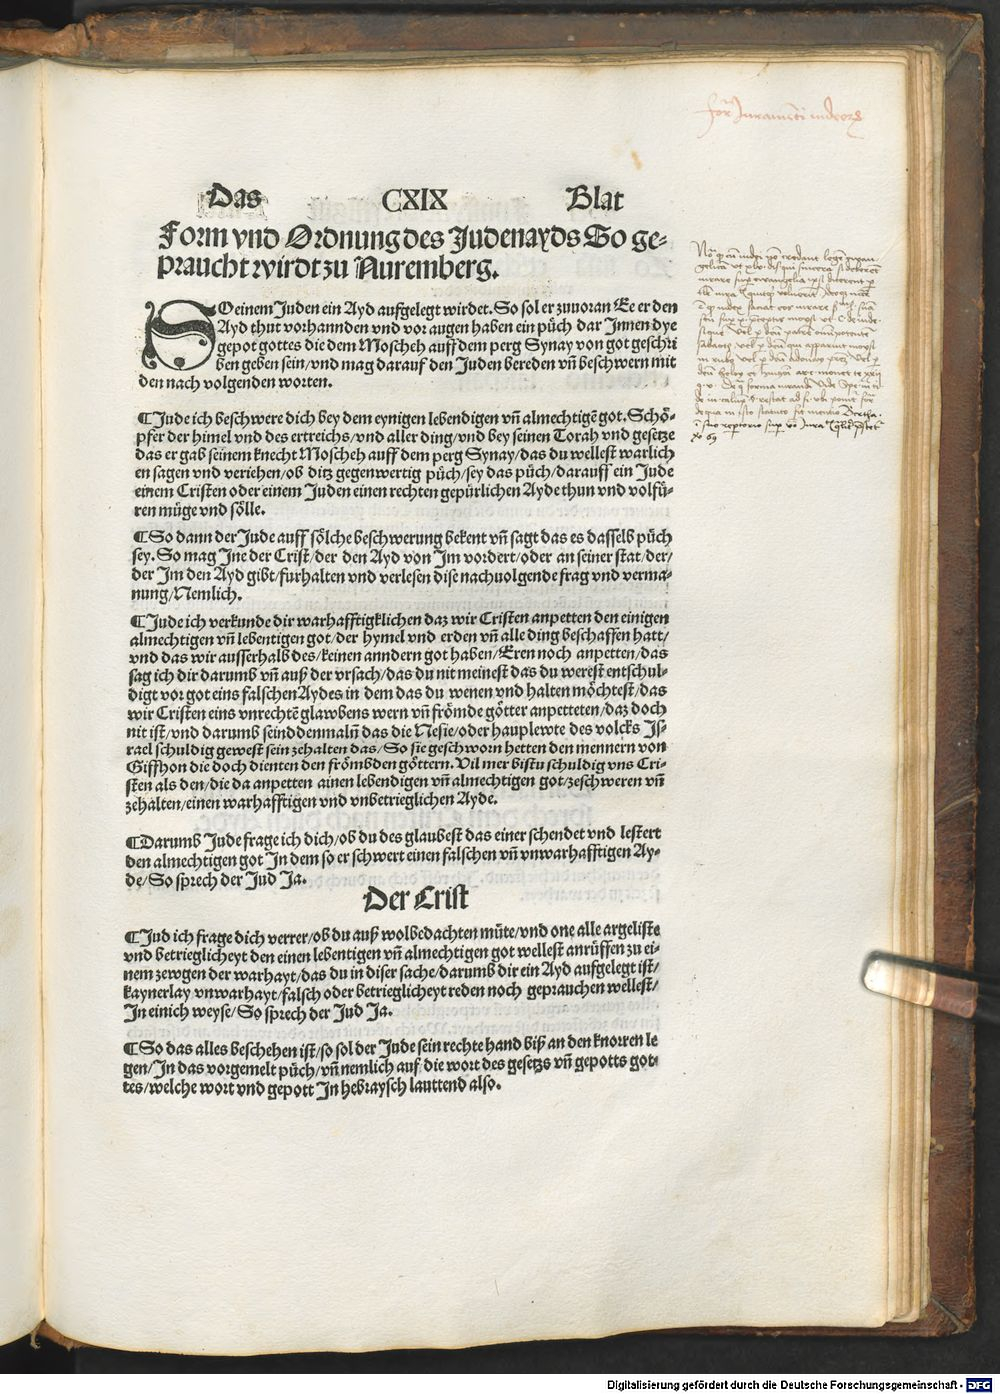 Das CXIX Blat
Form vnd Ordnung des Judenayds So ge-
praucht wirdt zu Nuremberg.
SO einem Juden ein Ayd aufgelegt wirdet. So sol er zuuoran Ee er den
Ayd thut vorhannden vnd vor augen haben ein püch dar Jnnen dye
gepot gottes die dem Moscheh auff dem perg Synay von got geschri
ben geben sein/vnd mag darauf den Juden bereden vñ beschwern mit
den nach volgenden worten.
¶Jude ich beschwere dich bey dem eynigen lebendigen vñ almechtigẽ got. Schö-
pfer der himel vnd des ertreichs/vnd aller ding/vnd bey seinen Torah vnd gesetze
das er gab seinem knecht Moscheh auff dem perg Synay/das du wellest warlich
en sagen vnd veriehen/ob ditz gegenwertig püch/sey das püch/darauff ein Jude
einem Cristen oder einem Juden einen rechten gepürlichen Ayde thun vnd volfü-
ren müge vnd sölle.
¶So dann der Jude auff sölche beschwerung bekent vñ sagt das es dasselb püch
sey. So mag Jne der Crist/der den Ayd von Jm vordert/oder an seiner stat/der/
der Jm den Ayd gibt/furhalten vnd verlesen dise nachuolgende frag vnd verma-
nung/Nemlich.
¶Jude ich verkunde dir warhafftigklichen daz wir Cristen anpetten den einigen
almechtigen vñ lebentigen got/der hymel vnd erden vñ alle ding beschaffen hatt/
vnd das wir ausserhalb des/keinen anndern got haben/Eren noch anpetten/das
sag ich dir darumb vñ auß der vrsach/das du nit meinest das du werest entschul-
digt vor got eins falschen Aydes in dem das du wenen vnd halten möchtest/das
wir Cristen eins vnrechtẽ glawbens wern vñ frömde götter anpetteten/daz doch
nit ist/vnd darumb seind denmaln das die Nesie/oder hauplewte des volcks Js-
rael schuldig gewest sein zehalten das/So sie geschworn hetten den mennern von
Giffhon die doch dienten den frömbden göttern. Vil mer bistu schuldig vns Cri-
sten als den/die da anpetten ainen lebendigen vñ almechtigen got/zeschweren vñ
zehalten/einen warhafftigen vnd vnbetrieglichen Ayde.
¶Darumb Jude frage ich dich/ob du des glaubest das einer schendet vnd lestert
den almechtigen got Jn dem so er schwert einen falschen vñ vnwarhafftigen Ay-
de/So sprech der Jud Ja.
Der Crist
¶Jud ich frage dich verrer/ob du auß wolbedachten müte/vnd one alle argeliste
vnd betrieglicheyt den einen lebentigen vñ almechtigen got wellest anrüffen zu ei-
nem zewgen der warhayt/das du in diser sache/darumb dir ein Ayd aufgelegt ist/
kaynerlay vnwarhayt/falsch oder betrieglicheyt reden noch geprauchen wellest/
Jn einich weyse/So sprech der Jud Ja.
¶So das alles beschehen ist/so sol der Jude sein rechte hand biß an den knorren le
gen/Jn das vorgemelt püch/vñ nemlich auf die wort des gesetzs vñ gepotts got-
tes/welche wort vnd gepott Jn hebraysch lauttend also.
Digitalisierung gefördert durch die Deutsche Forschungsgemeinschaft - DFG